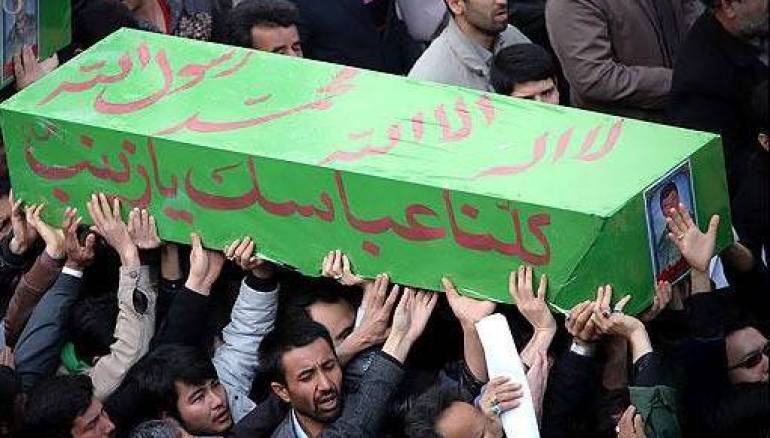 لا اله الا الله محمد رسول الله
كلنا عباسك يا زينب